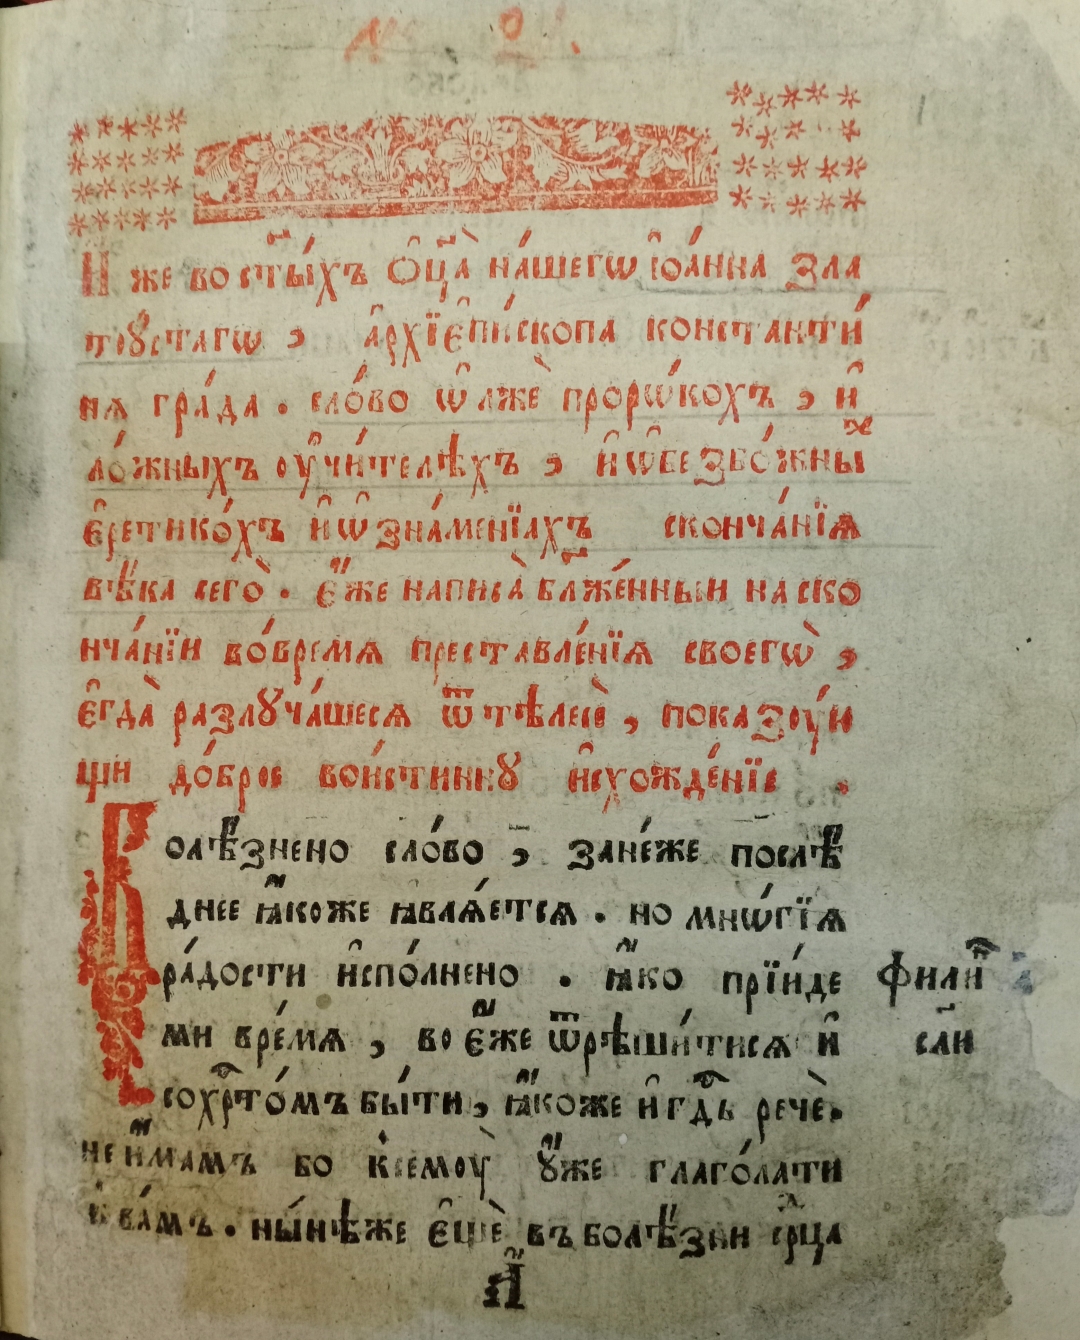 И҆же во ст҃ы́хъ Ѻ҆ц҃а̀ на́шегѡ і҆ѡа́нна зла
тоꙋстагѡ , а҆рхїе҆пи́скопа константи́
нѧ гра́да . сло́во ѡ҆ лжѐ прорѡ́кохъ , и҆
ло́жныхъ ᲂу҆чи́телѣхъ , и҆ ѡ҆ безбо́жныⷯ
є҆ретико́хъ и҆ ѡ҆ зна́менїахъ сконча́нїѧ
вѣ́ка сего̀ . є҆́же написа̀ бл҃же́нныи на ско
нча́нїи во́времѧ преставле́нїѧ своегѡ̀ ,
є҆гда̀ разлꙋча́шесѧ ѿ тѣлесѐ , показᲂу́и
щи до́брое вои́стиннꙋ и҆схожде́нїе .
Болѣ́знено сло́во , зане́же послѣ́
днее ꙗ҆́коже ꙗвлѧ́етсѧ . но мнѡ́гїѧ
ра́дости и҆спо́лнено . ꙗ҆́ко прїи́де
ми вре́мѧ , во є҆́же ѿрѣши́тисѧ и҆
со хрⷭ҇то́мъ бы́ти , ꙗ҆́коже и҆ гдⷭ҇ь речѐ.
не и҆́мамъ бо к семᲂу̀ ᲂу҆́же глаго́лати
к ва́мъ . ны́нѣ же є҆щѐ въ болѣ́зни срⷣца
филиⷫ҇
сл҃и
а҃